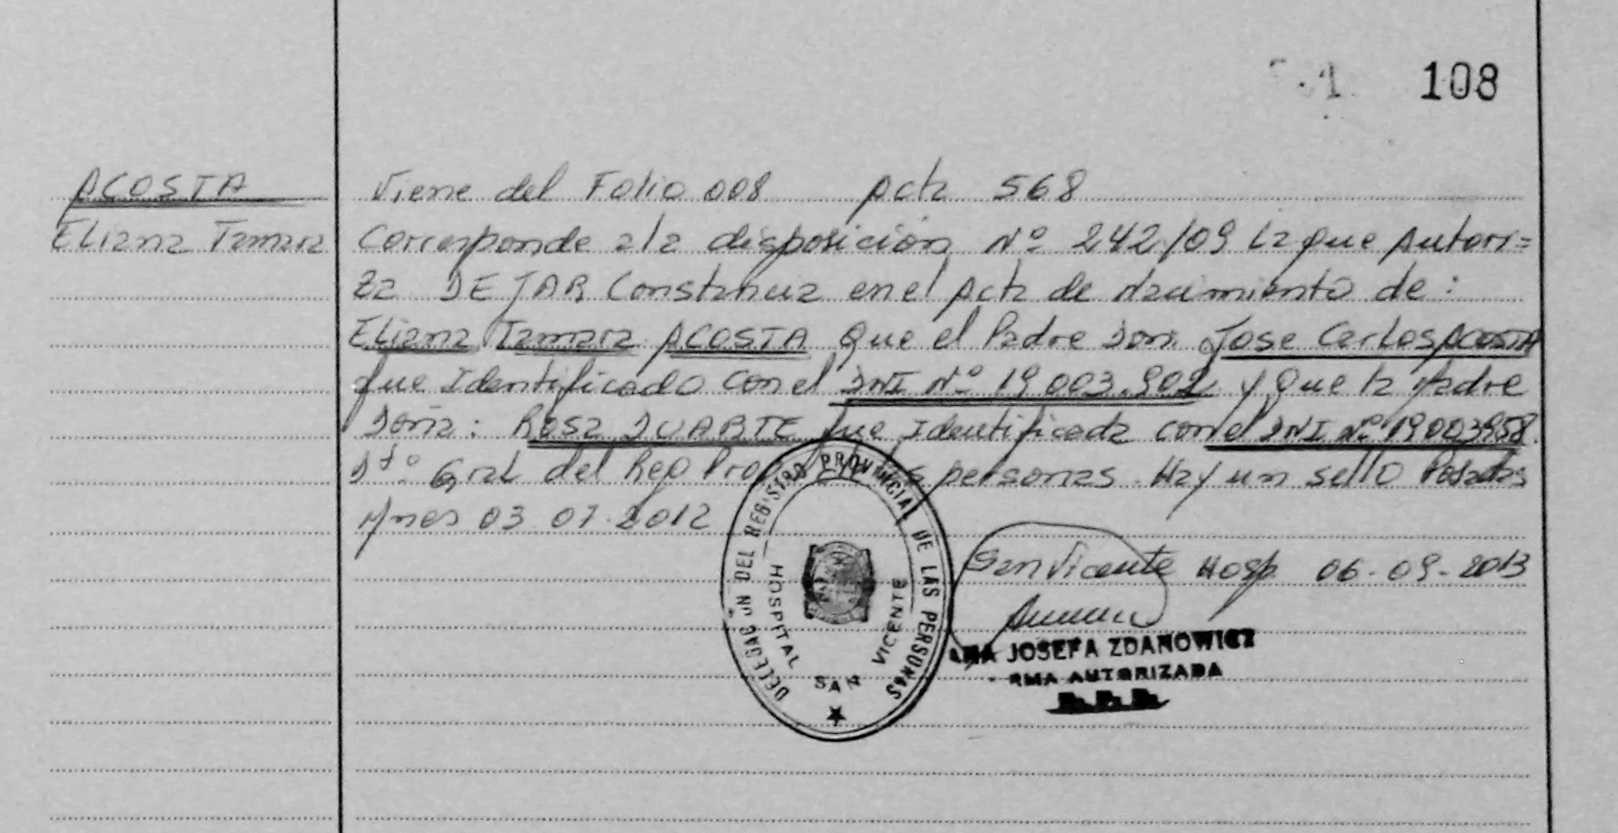 108
ACOSTA
Eliana Tamara
Viene del Folio 008 Acta 568
Corresponde a la disposición Nº 242/09 La que Autori=
za DEJAR Constancia en el Acta de Nacimiento de:
Eliana Tamara ACOSTA Que el Padre Don: Jose Carlos ACOSTA
fue Identificado con el DNI Nº 19.003.902 y Que la Madre
Doña: Rosa DUARTE fue Identificada con el DNI Nº 19003958.
Gral del Reg Prov personas. Hay un sello Posadas
Mnes 03 07 2012
San Vicente Hosp. 06-09-2013
JOSEFA ZDANOWICZ
RMA AUTORIZADA
DELEGACºN DEL REGISTRO PROVINCIAL DE LAS PERSONAS
HOSPITAL SAN VICENTE